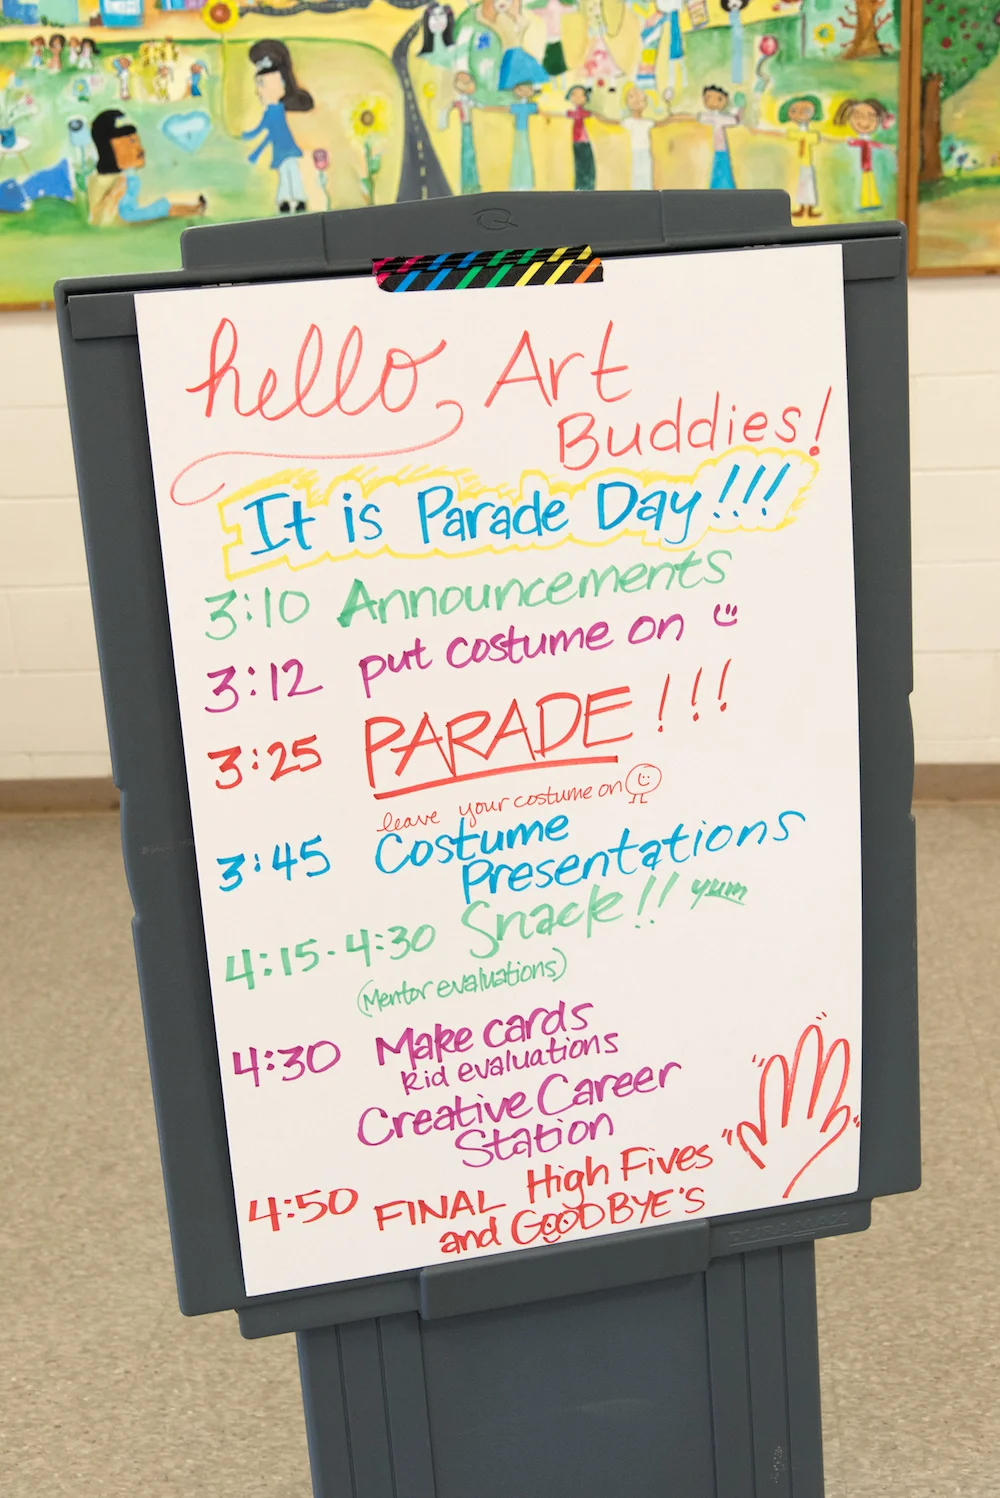 hello, Art
Buddies!
It is Parade Day!!!
3:10 Announcements
3:12 put costume on
3:25 PARADE!!!
leave your costume on
3:45 Costume
Presentations
4:15-4:30 Snack!! yum
(Mentor evaluations)
4:30 Make cards
Kid evaluations
Creative Career
Station
4:50 FINAL High Fives
and GOODBYE'S
DURAMAX